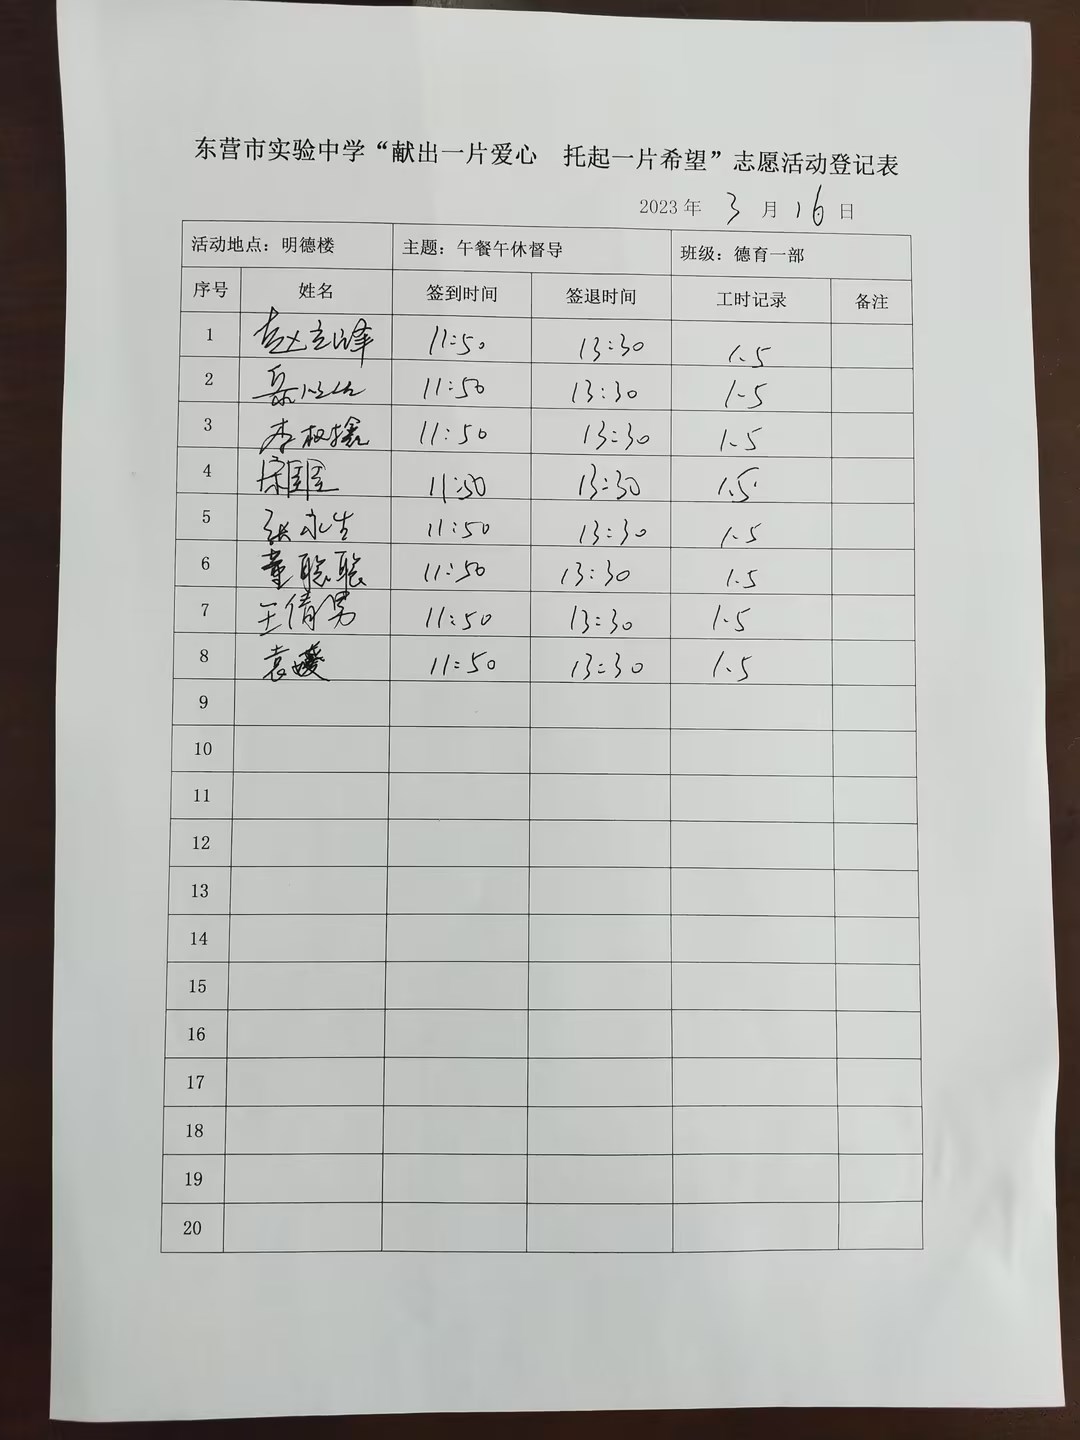 东营市实验中学“献出一片爱心　托起一片希望”志愿活动登记表
2023 年 3 月 16 日
活动地点：明德楼 主题：午餐午休督导 班级：德育一部
序号 姓名 签到时间 签退时间 工时记录 备注
1 赵立峰 11:50 13:30 1.5
2 11:50 13:30 1.5
3 李 11:50 13:30 1.5
4 11:50 13:30 1.5
5 张永生 11:50 13:30 1.5
6 董聪聪 11:50 13:30 1.5
7 王倩男 11:50 13:30 1.5
8 袁媛 11:50 13:30 1.5
9
10
11
12
13
14
15
16
17
18
19
20